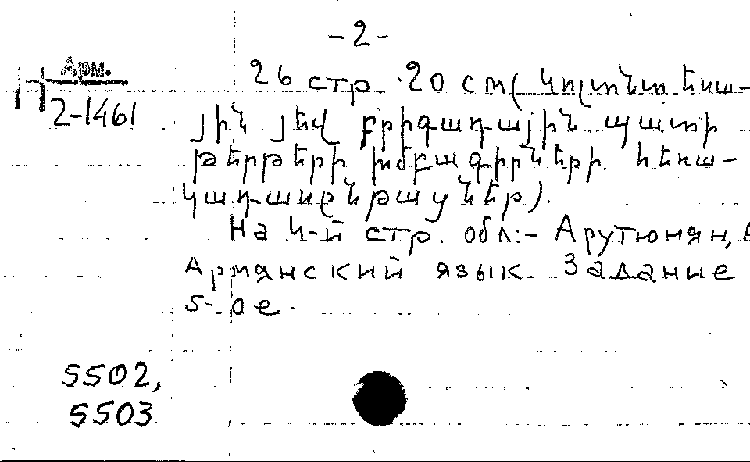 -2-
Арм.
2-1461
26 стр. 20 см (կոլտնտեսա-
յին յեվ բրիգադային պատի
թերթերի խմբագիրների հեռա-
կա դասընթացներ).
На 4-й стр. обл:- Арутюнян,
Армянский язык. Задание
5-ое.
5502,
5503